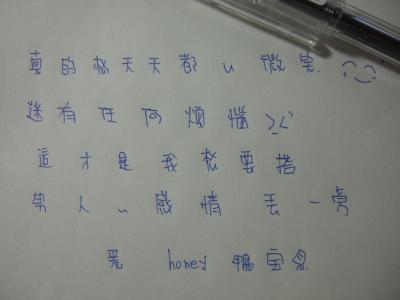 真的好天天都ㄩ微笑
沒有任何煩惱 >.<
這才是我想要搭
男人ㄉ感情丟一旁
爱 honey 鴨宝貝